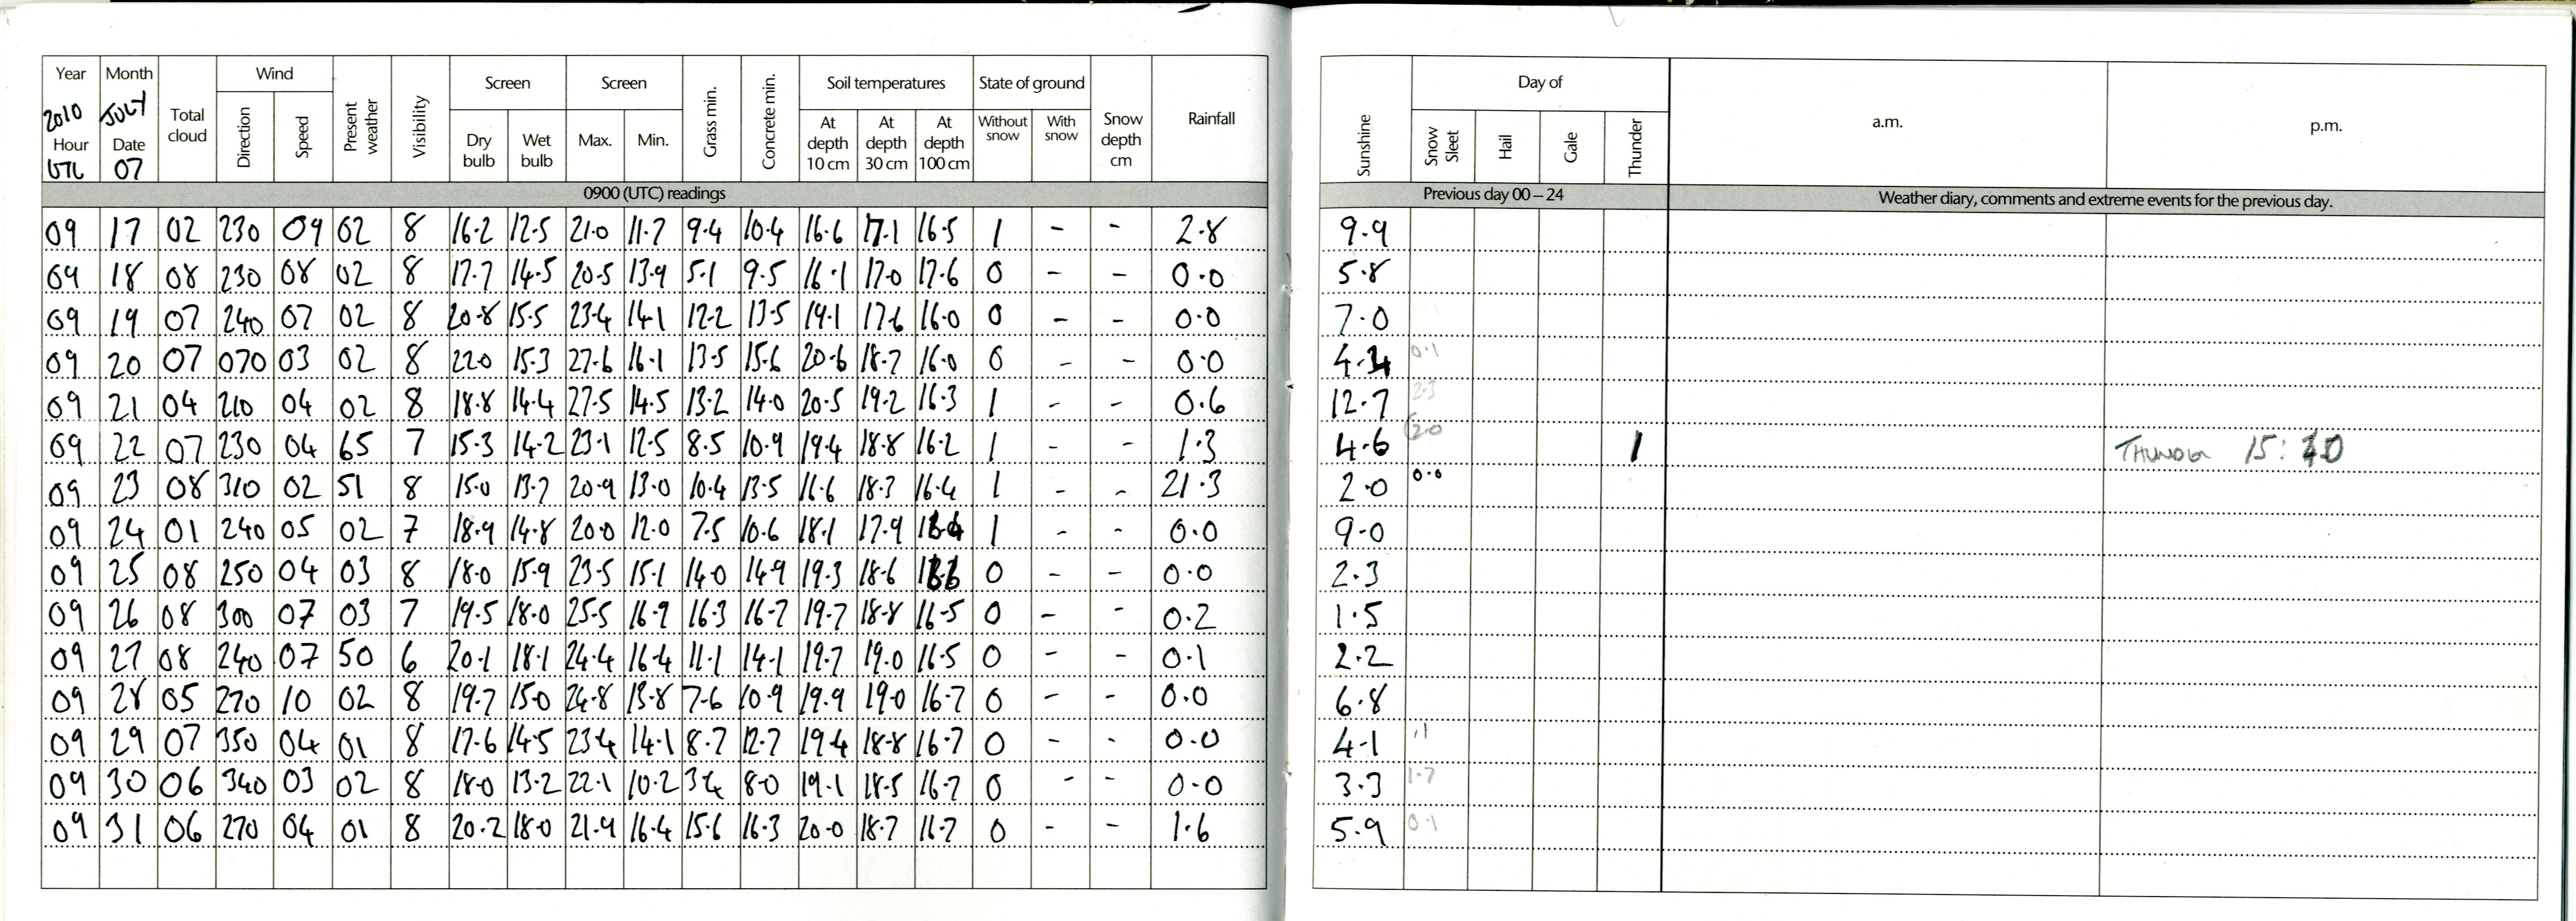 Year Month Total cloud Wind Present weather Visibility Screen Screen Grass min. Concrete min. Soil temperatures State of ground Snow depth cm Rainfall Sunshine Day of a.m. p.m.
2010 JULY Direction Speed Dry bulb Wet bulb Max. Min. At depth 10 cm At depth 30 cm At depth 100 cm Without snow With snow Snow Sleet Hail Gale Thunder
Hour Date
UTC 07
0900 (UTC) readings Previous day 00 – 24 Weather diary, comments and extreme events for the previous day.
09 17 02 230 09 02 8 16.2 12.5 21.0 11.7 9.4 10.4 16.6 17.1 16.5 1 - - 2.8 9.9
09 18 08 230 08 02 8 17.7 14.5 20.5 13.9 5.1 9.5 16.1 17.0 17.6 0 - - 0.0 5.8
09 19 07 240 07 02 8 20.8 15.5 23.4 14.1 12.2 13.5 19.1 17.6 16.0 0 - - 0.0 7.0
09 20 07 070 03 02 8 22.0 15.3 27.6 16.1 13.5 15.6 20.6 18.7 16.0 0 - - 0.0 0.1
09 21 04 210 04 02 8 18.8 14.4 27.5 14.5 13.2 14.0 20.5 19.2 16.3 1 - - 0.6 12.7 2.3
09 22 07 230 04 65 7 15.3 14.2 23.1 12.5 8.5 10.9 19.4 18.8 16.2 1 - - 1.3 4.6 2.0 1 THUNDER 15:
09 23 08 310 02 51 8 15.0 13.7 20.9 13.0 10.4 13.5 16.6 18.3 16.4 1 - - 21.3 2.0 0.0
09 24 01 240 05 02 7 18.9 14.8 20.0 12.0 7.5 10.6 18.1 17.9 1 - - 0.0 9.0
09 25 08 250 04 03 8 18.0 15.9 23.5 15.1 14.0 14.9 19.3 18.6 0 - - 0.0 2.3
09 26 08 300 07 03 7 19.5 18.0 25.5 16.9 16.3 16.7 19.7 18.8 16.5 0 - - 0.2 1.5
09 27 08 240 07 50 6 20.1 18.1 24.4 16.4 11.1 14.1 19.7 19.0 16.5 0 - - 0.1 2.2
09 28 05 270 10 02 8 19.7 15.0 24.8 13.8 7.6 10.9 19.9 19.0 16.7 0 - - 0.0 6.8
09 29 07 350 04 01 8 17.6 14.5 23.4 14.1 8.7 12.7 19.4 18.8 16.7 0 - - 0.0 4.1
09 30 06 340 03 02 8 18.0 13.2 22.1 10.2 3.4 8.0 19.1 18.5 16.7 0 - - 0.0 3.3 1.7
09 31 06 270 04 01 8 20.2 18.0 21.9 16.4 15.6 16.3 20.0 18.7 16.7 0 - - 1.6 5.9 0.1